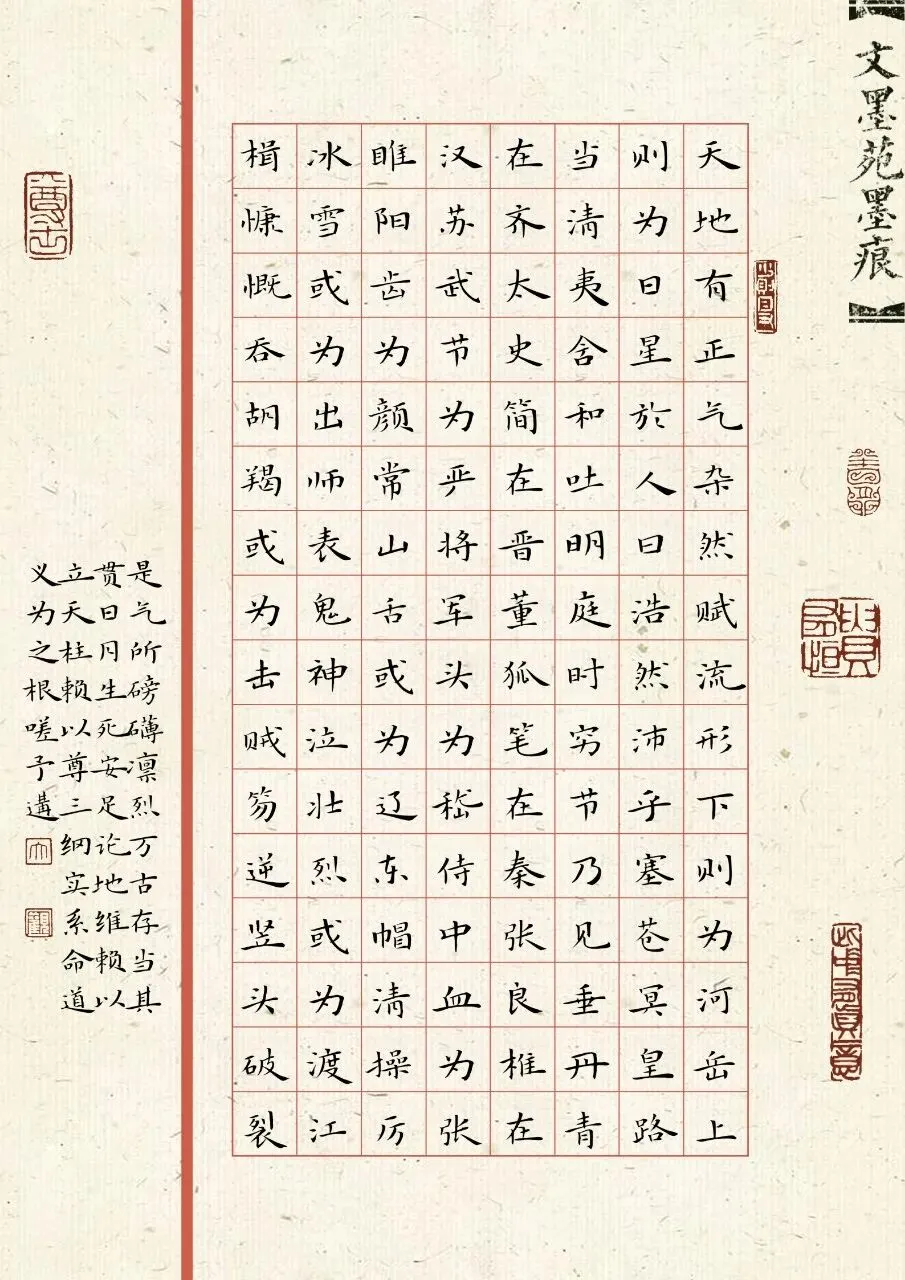 文墨苑墨痕
天地有正气杂然赋流形下则为河岳上
则为日星於人曰浩然沛乎塞苍冥皇路
当清夷含和吐明庭时穷节乃见垂丹青
在齐太史简在晋董狐笔在秦张良椎在
汉苏武节为严将军头为嵇侍中血为张
睢阳齿为颜常山舌或为辽东帽清操厉
冰雪或为出师表鬼神泣壮烈或为渡江
楫慷慨吞胡羯或为击贼笏逆竖头破裂
是气所磅礴凛烈万古存当其
贯日月生死安足论地维赖以
立天柱赖以尊三纲实系命道
义为之根嗟予遘